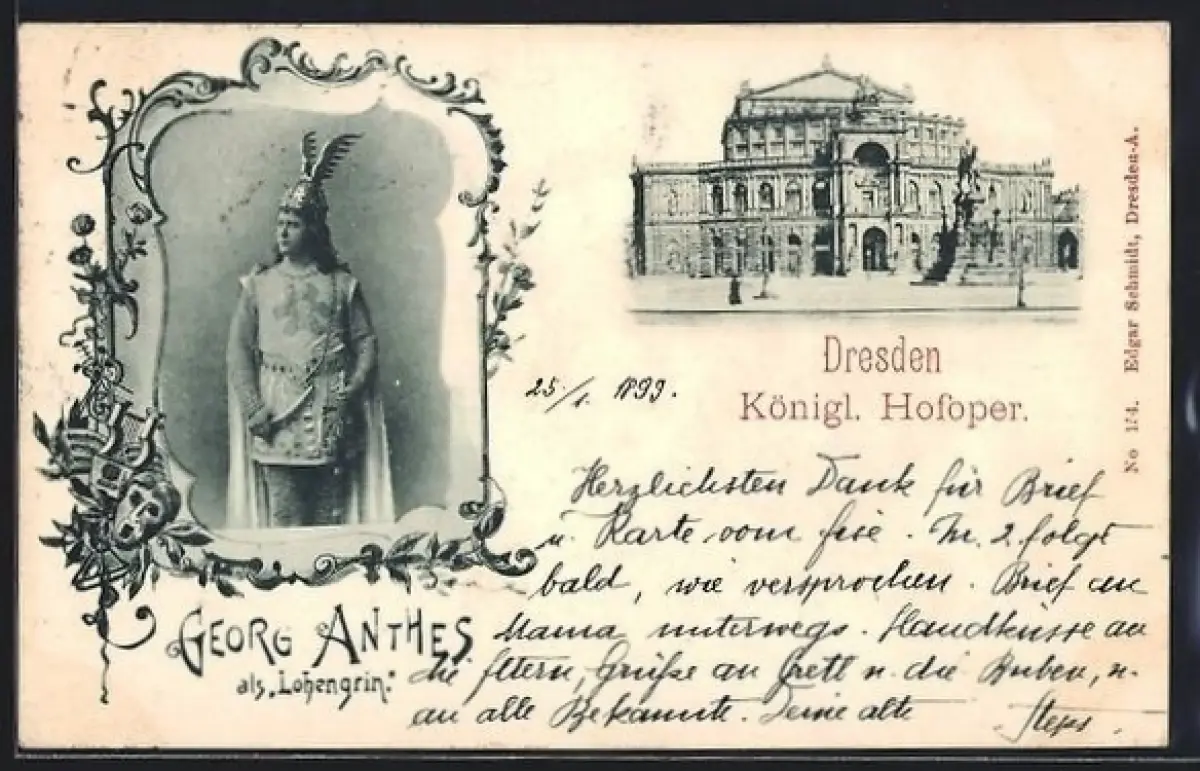 GEORG ANTHES
als „Lohengrin."
Dresden
Königl. Hofoper.
No 154. Edgar Schmidt, Dresden-A.
25./1. 1899.
Herzlichsten Dank für Brief
u. Karte vom . 2 folgt
bald, wie versprochen. Brief an
Mama unterwegs. Handküsse an
die Eltern, Grüße an Gretl u. die Buben, u.
an alle Bekannte. Deine alte